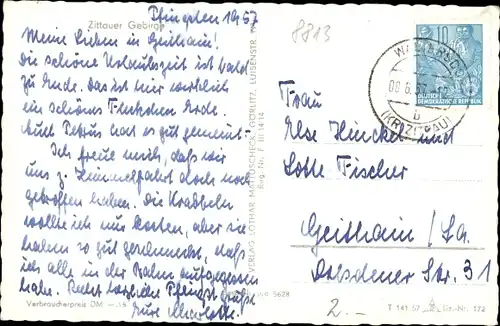 Pfingsten 1957
Zittauer Gebirge
Meine Lieben in Geithain!
Die schöne Urlaubszeit ist bald
zu Ende. Das ist hier wirklich
ein schönes Fleckchen Erde.
Auch Petrus hat es gut gemeint.
Ich freue mich, daß wir
uns z. Himmelfahrt doch noch
getroffen haben. Die Krabbeln
wollte ich nur kosten, aber sie
haben so gut geschmeckt, daß
ich alle in der Bahn aufgegessen
habe. Recht herzliche Pfingstgrüße
Eure
Verbraucherpreis DM
VERLAG LOTHAR MATTUSCHECK, GÖRLITZ, LUISENSTR.
Reg.-Nr. F III 14 14
8813
10
DEUTSCHE
DEMOKRATISCHE REPUBLIK
WALTERSDORF
b
(KR. ZITTAU)
Frau
Else Hinckel und
Lotte Fischer
Geithain / Sa.
Dresdener Str. 31
5628
2.-
T 141 57
Liz.-Nr. 173